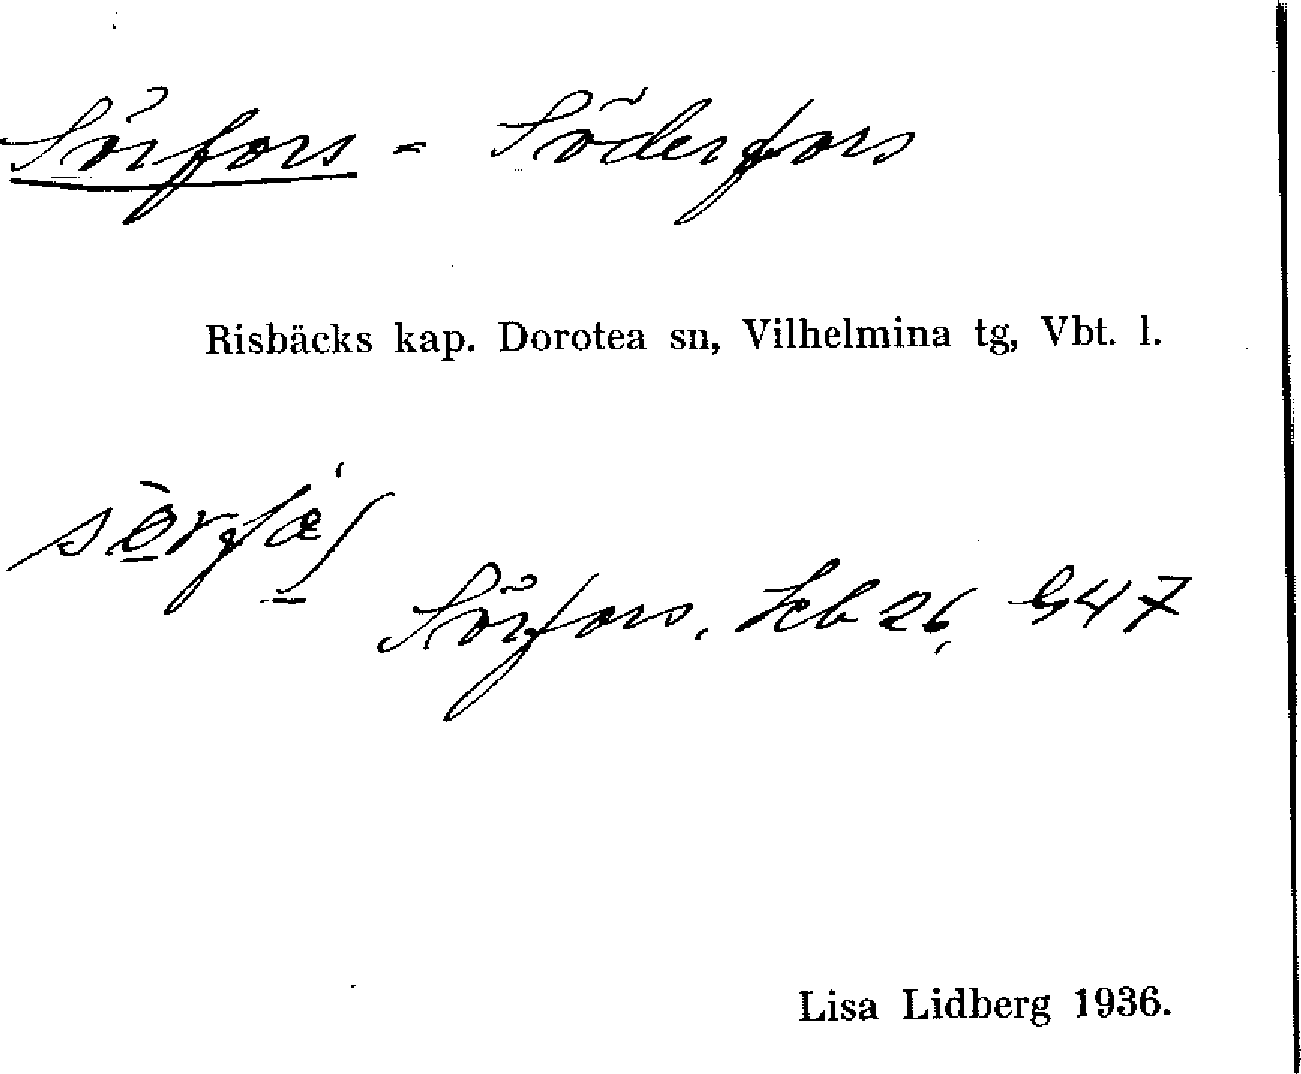 Sörfors - Söderfors
Risbäcks kap. Dorotea sn, Vilhelmina tg, Vbt. l.
Sörfors,
Lisa Lidberg 1936.